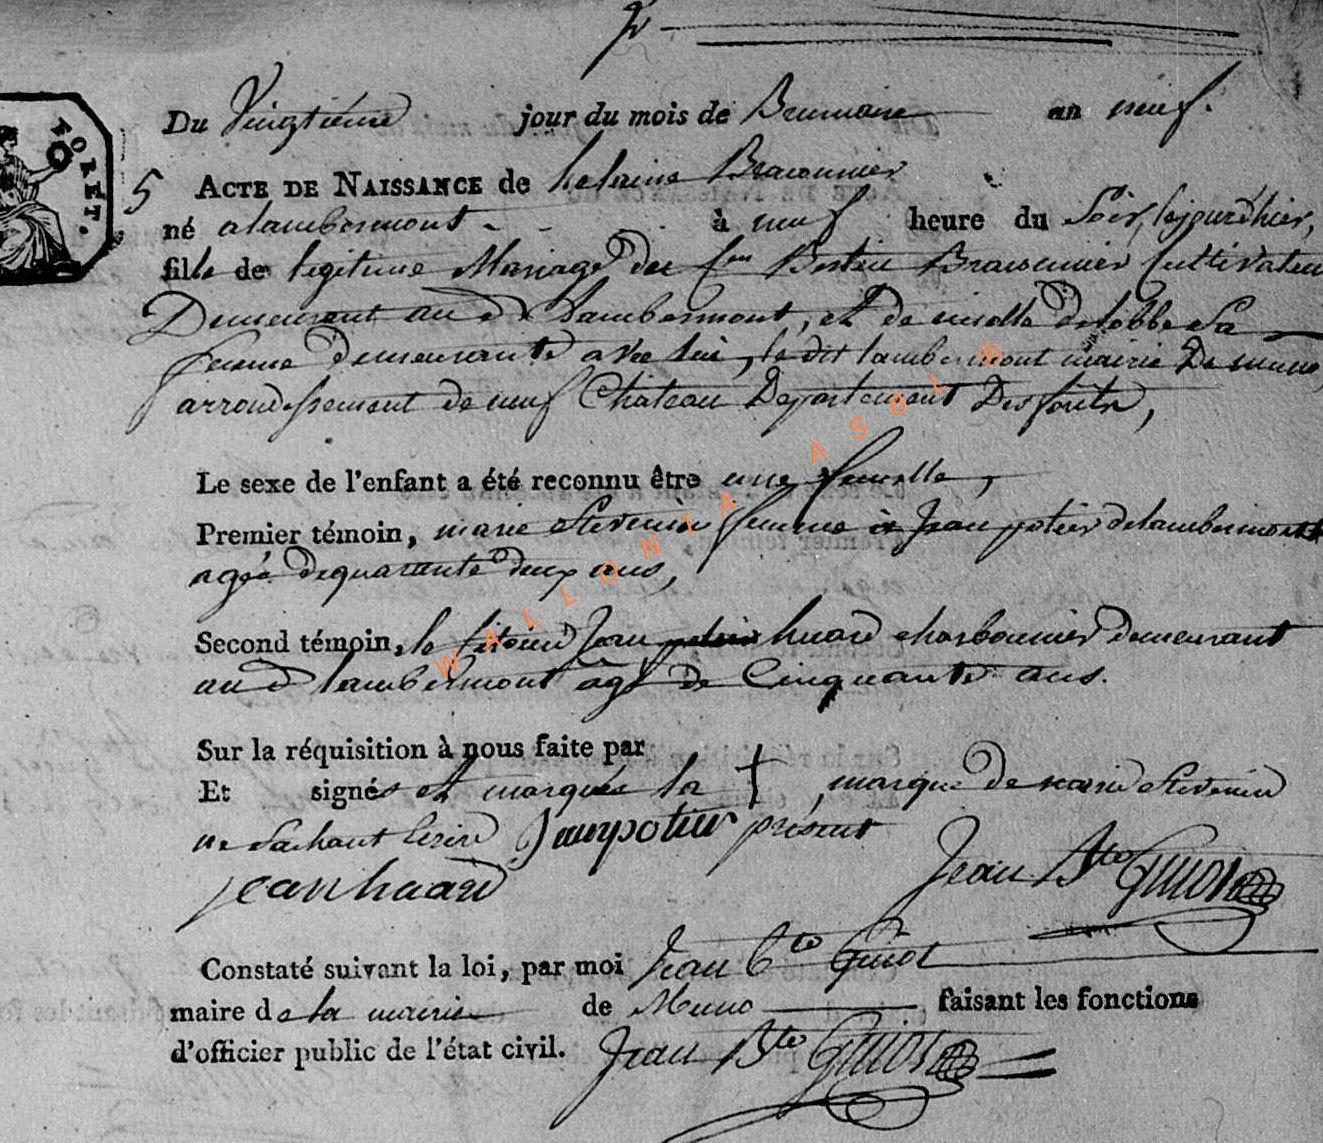 Du Vingtième jour du mois de Brumaire an neuf.
5 ACTE DE NAISSANCE de helaine Braconnier
né a lambermont à neuf heure du Soir, le jourd'hier,
fille de legitime Mariage de Braconnier Cultivateur
Demeurant au d Lambermont, et de delobbe Sa
femme demeurante avec lui, le dit lambermont mairie De muno,
arrondissement de neuf Chateau Departement Des forêts,
FORÊT.
Le sexe de l'enfant a été reconnu être une femelle,
Premier témoin, marie Stevenin femme à Jean potier de lambermont
agée de quarante deux ans,
Second témoin, le Citoien Jean huard charbonnier demeurant
au d lambermont agé de Cinquante ans.
Sur la réquisition à nous faite par
Et signés et marqués la + marque de marie Stevenin
ne Sachant Ecrire Jean potier présent
jean huard Jean Bte Guiot
Constaté suivant la loi, par moi Jean Bte Guiot
maire de la mairie de Muno faisant les fonctions
d'officier public de l'état civil. Jean Bte Guiot
WALLONIA ASBL ®